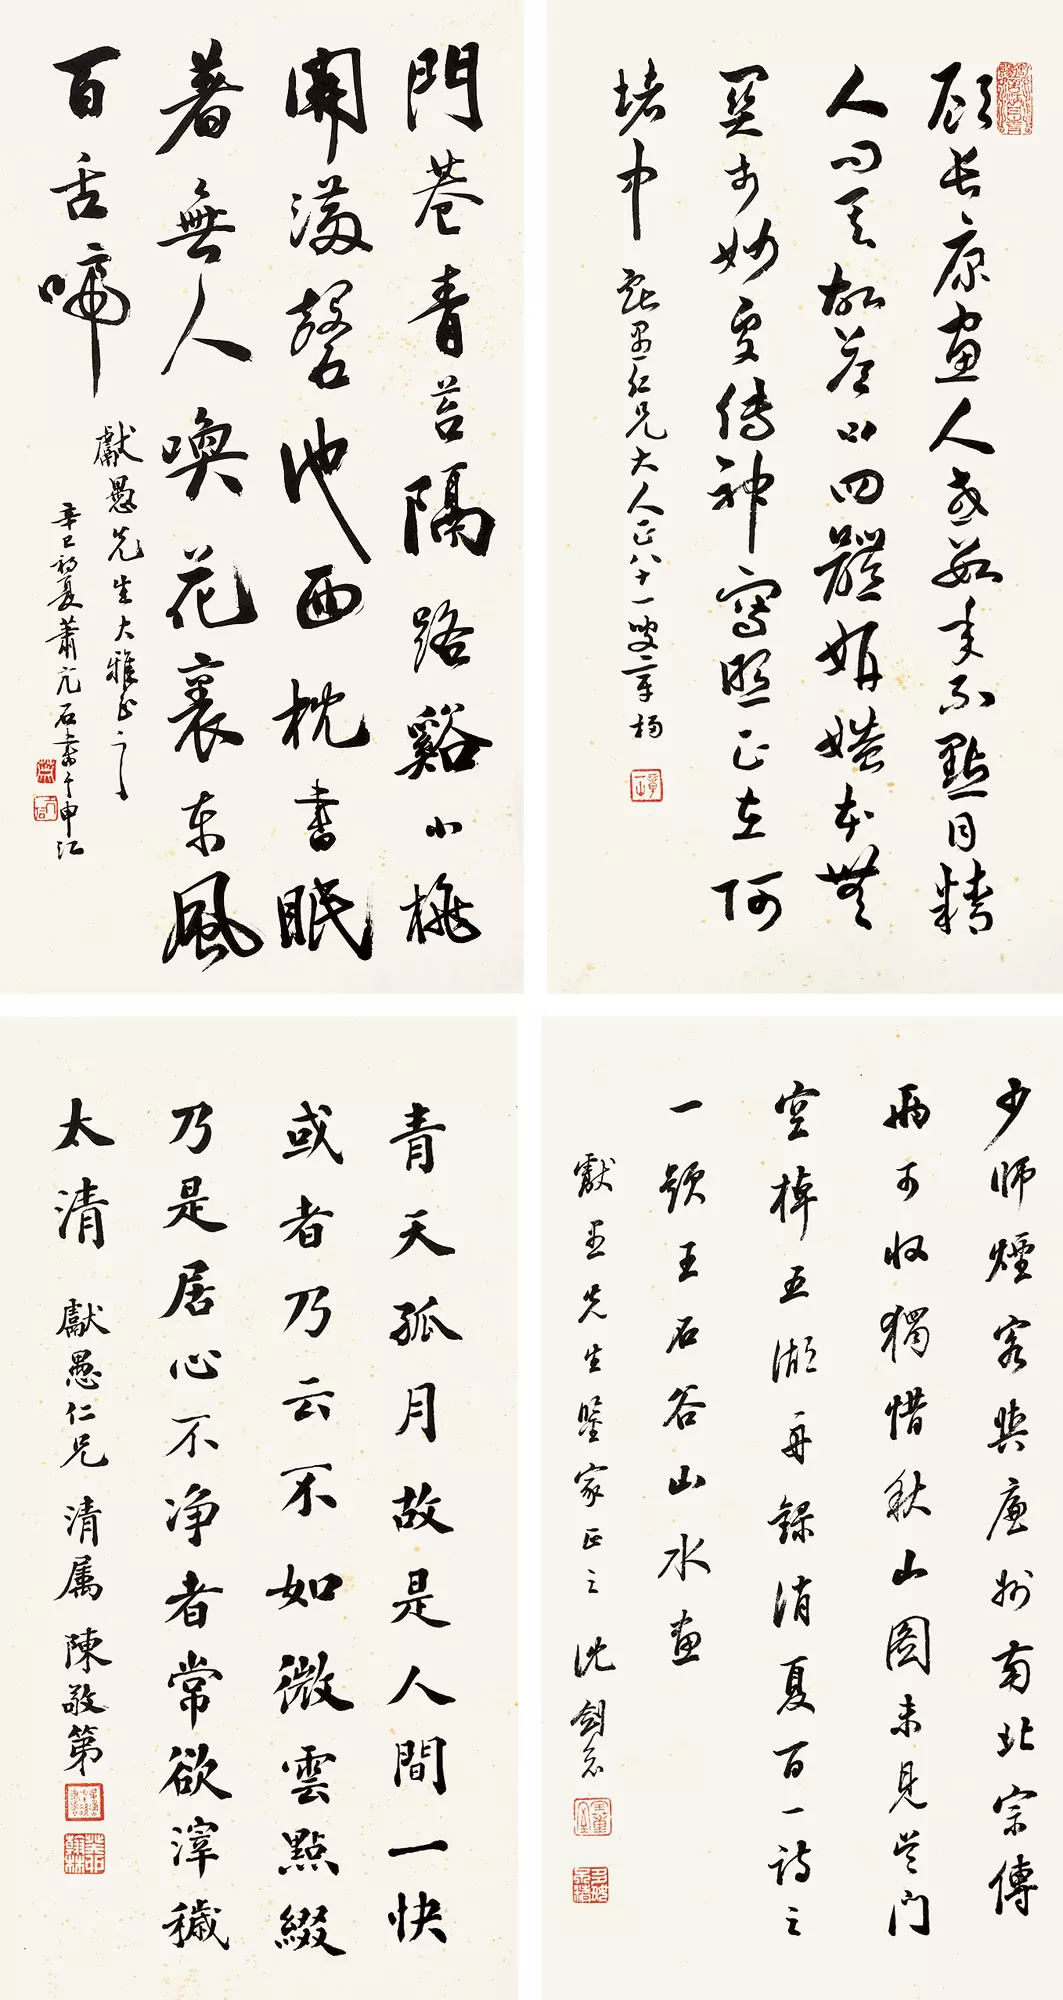 顾長康画人或數年不點目精
人问其故答曰四體妍媸本無
關於妙處傳神寫照正在阿
堵中 獻愚仁兄大人正 八十一叟章梫
門巷青苔隔路谿小桃
開滿磬池西枕書眠
著無人喚花裏東風
百舌啼
獻愚先生大雅正之
辛巳初夏蕭亢石書于申江
少師煙客與廉州南北宗傳
兩可收獨惜秋山圖未見吳門
空棹五湖舟錄消夏百一詩之
一題王石谷山水畫
獻愚先生鑒家正之 沈劍知
青天孤月故是人間一快
或者乃云不如微雲點綴
乃是居心不净者常欲滓穢
太清 獻愚仁兄清属 陳敬第